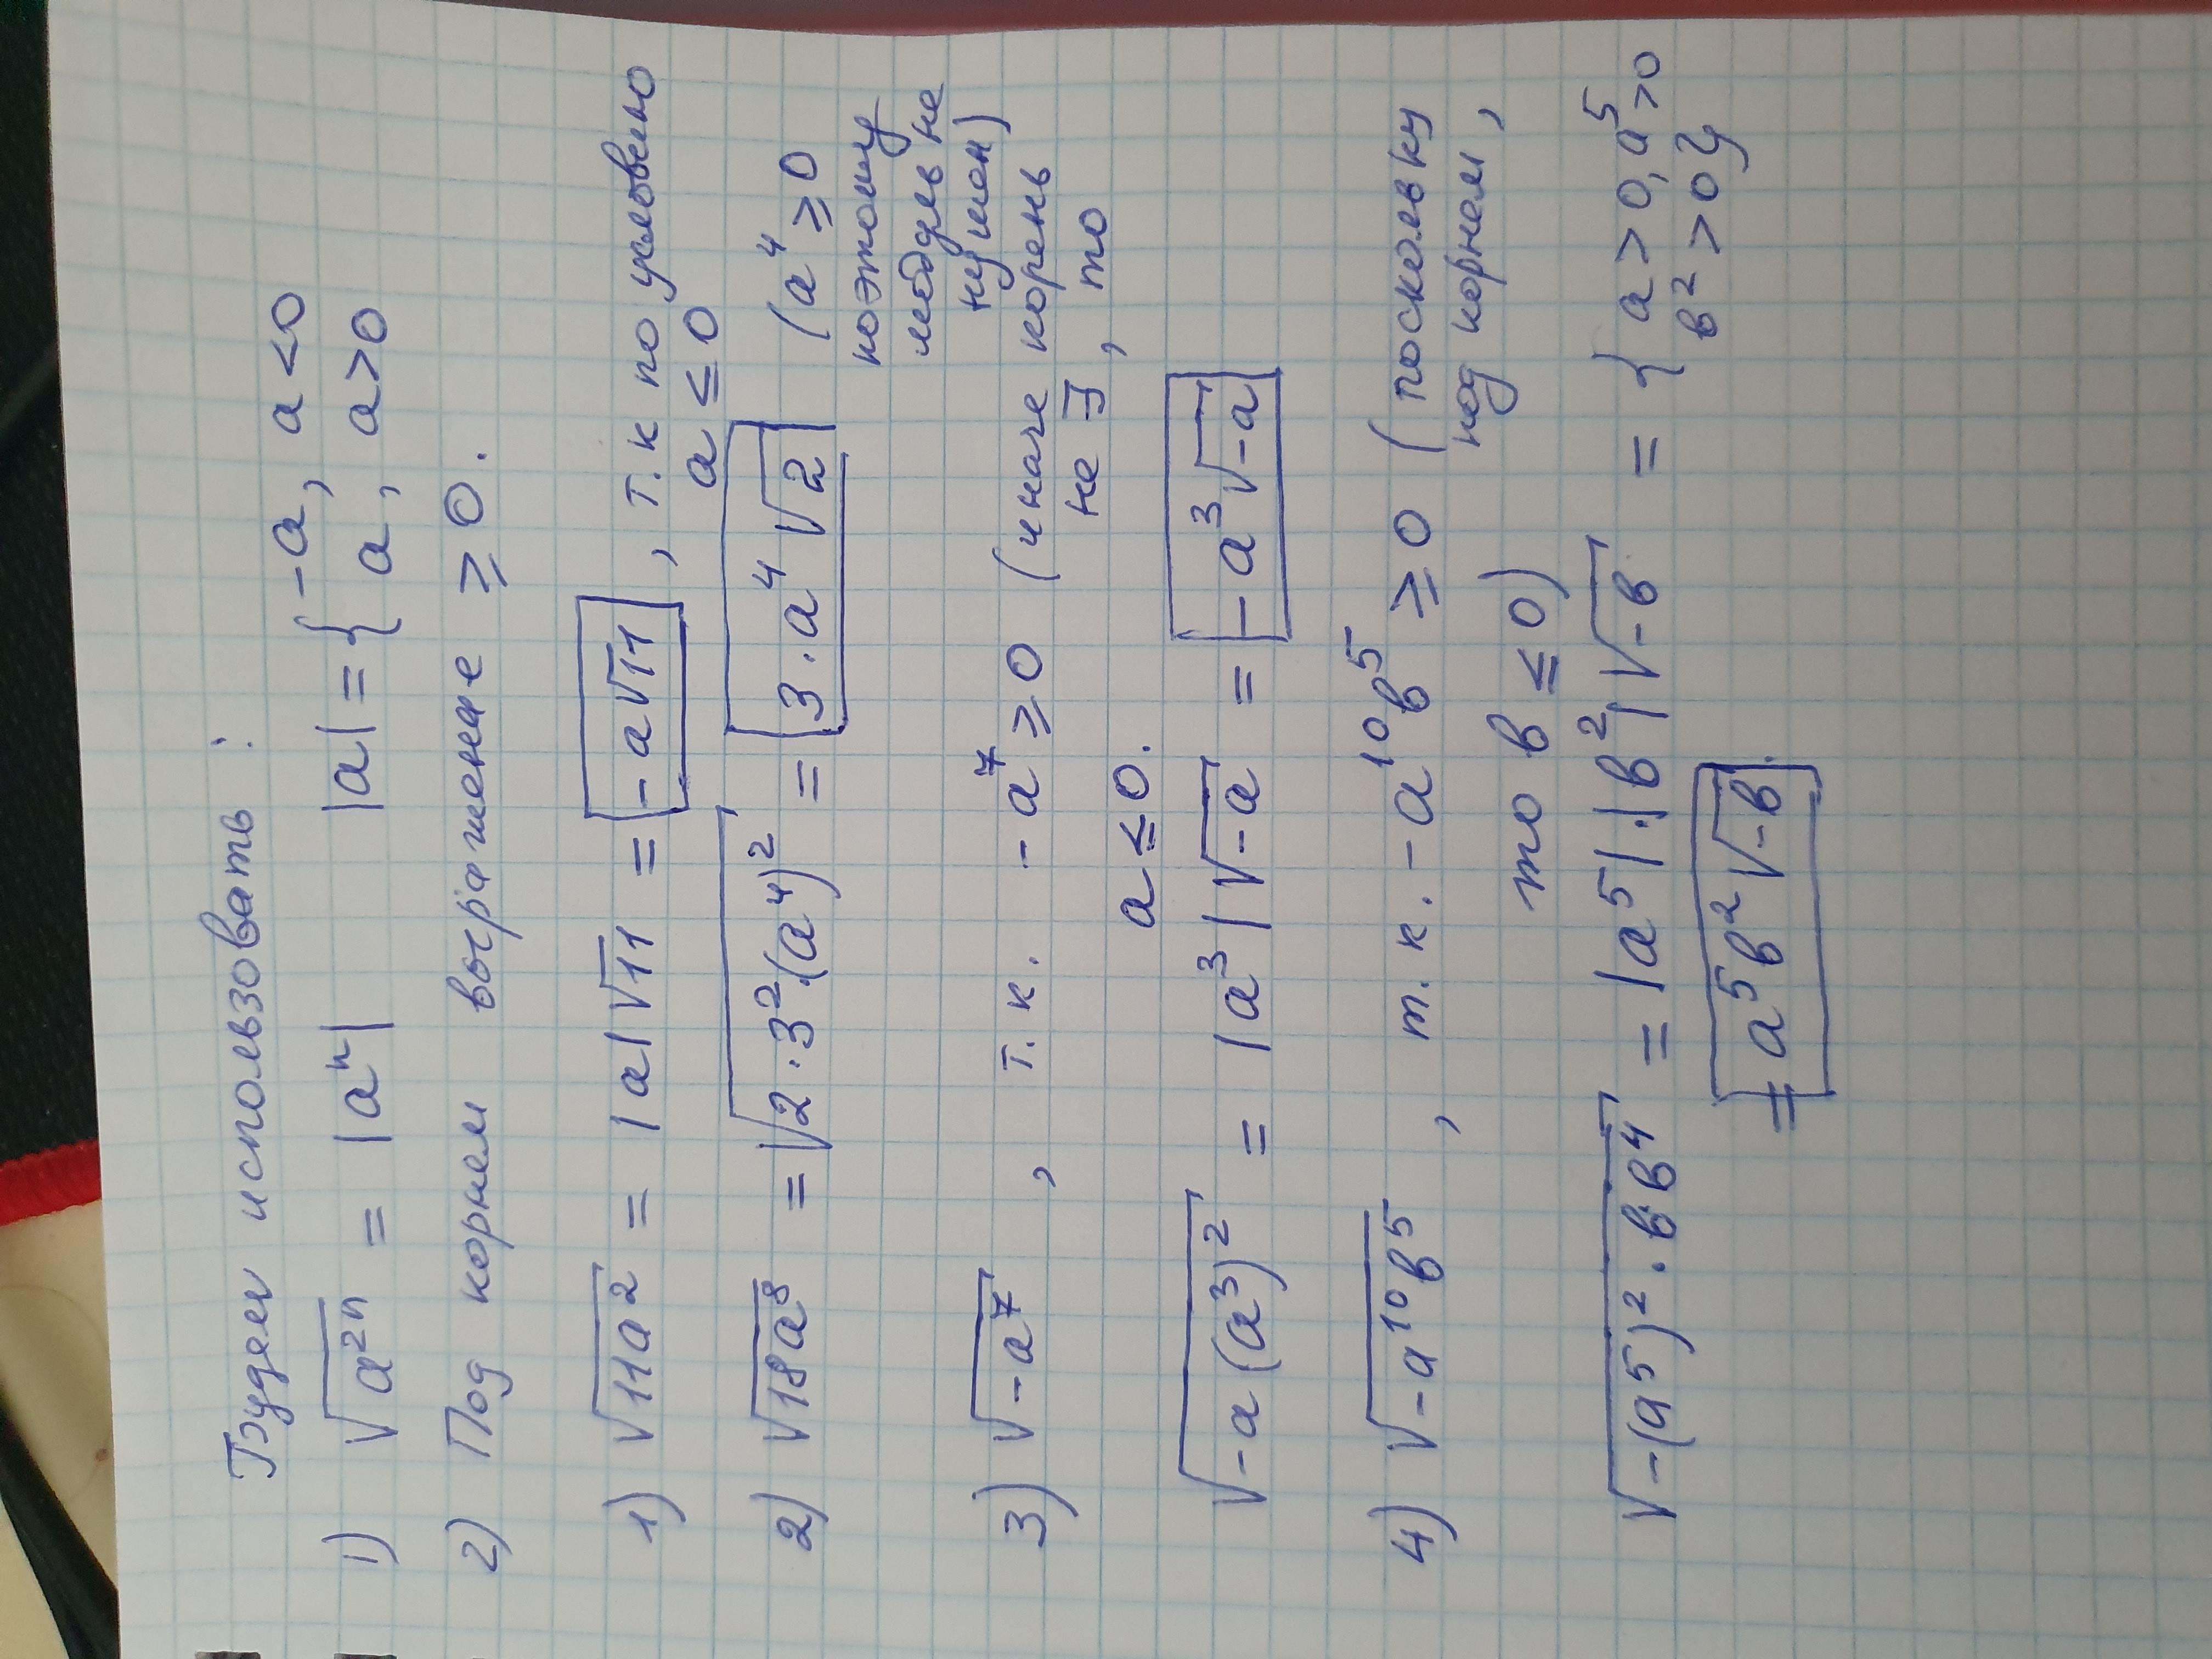 Будем использовать:
1) √a²ⁿ = |aⁿ| |a| = { -a, a<0
a, a>0
2) Под корнем выражение ⩾ 0.
1) √11a² = |a|√11 = -a√11, т.к по условию
a ≤ 0
2) √18a⁸ = √2·3²·(a⁴)² = 3·a⁴√2 (a⁴ ⩾ 0
поэтому
модуль не
нужен)
3) √-a⁷, т.к. -a⁷ ⩾ 0 (иначе корень
не ∃), то
a ≤ 0.
√-a(a³)² = |a³|√-a = -a³√-a
4) √-a¹⁰b⁵, т.к. -a¹⁰b⁵ ⩾ 0 (поскольку
под корнем,
то b ≤ 0)
√-(a⁵)²·b·b⁴ = |a⁵|·|b²|√-b = { a>0, a⁵>0
b²>0}
= a⁵b²√-b.